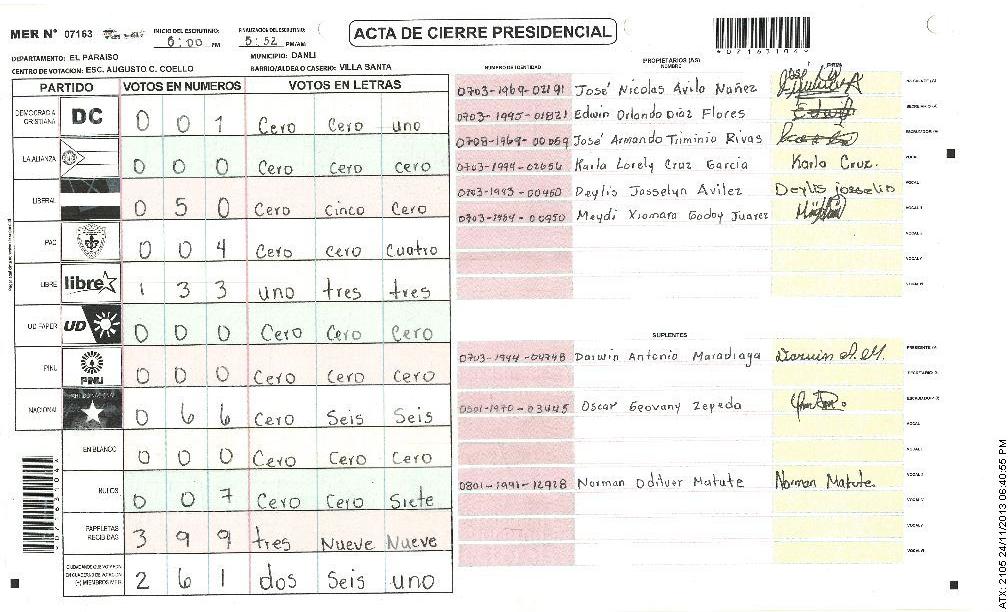 ACTA DE CIERRE PRESIDENCIAL
MER N° 07163
INICIO DEL ESCRUTINIO: 5:00 PM
FINALIZACION DEL ESCRUTINIO: 5:52 PM/AM
DEPARTAMENTO: EL PARAISO
MUNICIPIO: DANLI
CENTRO DE VOTACION: ESC. AUGUSTO C. COELLO
BARRIO/ALDEA O CASERIO: VILLA SANTA
PARTIDO VOTOS EN NUMEROS VOTOS EN LETRAS
DEMOCRACIA CRISTIANA DC 0 0 1 Cero Cero uno
LA ALIANZA 0 0 0 Cero Cero cero
LIBERAL 0 5 0 Cero Cinco Cero
PAC 0 0 4 Cero Cero Cuatro
LIBRE libre 1 3 3 uno tres tres
UD FAPER UD 0 0 0 Cero Cero Cero
PINU PINU 0 0 0 Cero Cero Cero
NACIONAL 0 6 6 Cero Seis Seis
EN BLANCO 0 0 0 Cero Cero Cero
NULOS 0 0 7 Cero Cero Siete
PAPELETAS RECIBIDAS 3 9 9 tres Nueve Nueve
CIUDADANOS QUE VOTARON EN CUADERNO DE VOTACION (+) MIEMBROS MER 2 6 1 dos Seis uno
PROPIETARIOS (AS)
NUMERO DE IDENTIDAD NOMBRE FIRMA
0703-1969-02191 José Nicolas Avilo Nuñez
0703-1995-01821 Edwin Orlando Diaz Flores Edwin
0708-1969-00059 José Armando Triminio Rivas
0703-1994-02656 Karla Lorely Cruz Garcia Karla Cruz.
0703-1993-00460 Deylis Josselyn Avilez Deylis josselin
0703-1964-00950 Meydi Xiomara Godoy Juarez
SUPLENTES
0703-1944-04748 Darwin Antonio Maradiaga Darwin A. M.
0501-1970-03445 Oscar Geovany Zepeda
0801-1991-12928 Norman Odilver Matute Norman Matute.
ATX: 2105 24/11/2013 06:40:55 PM